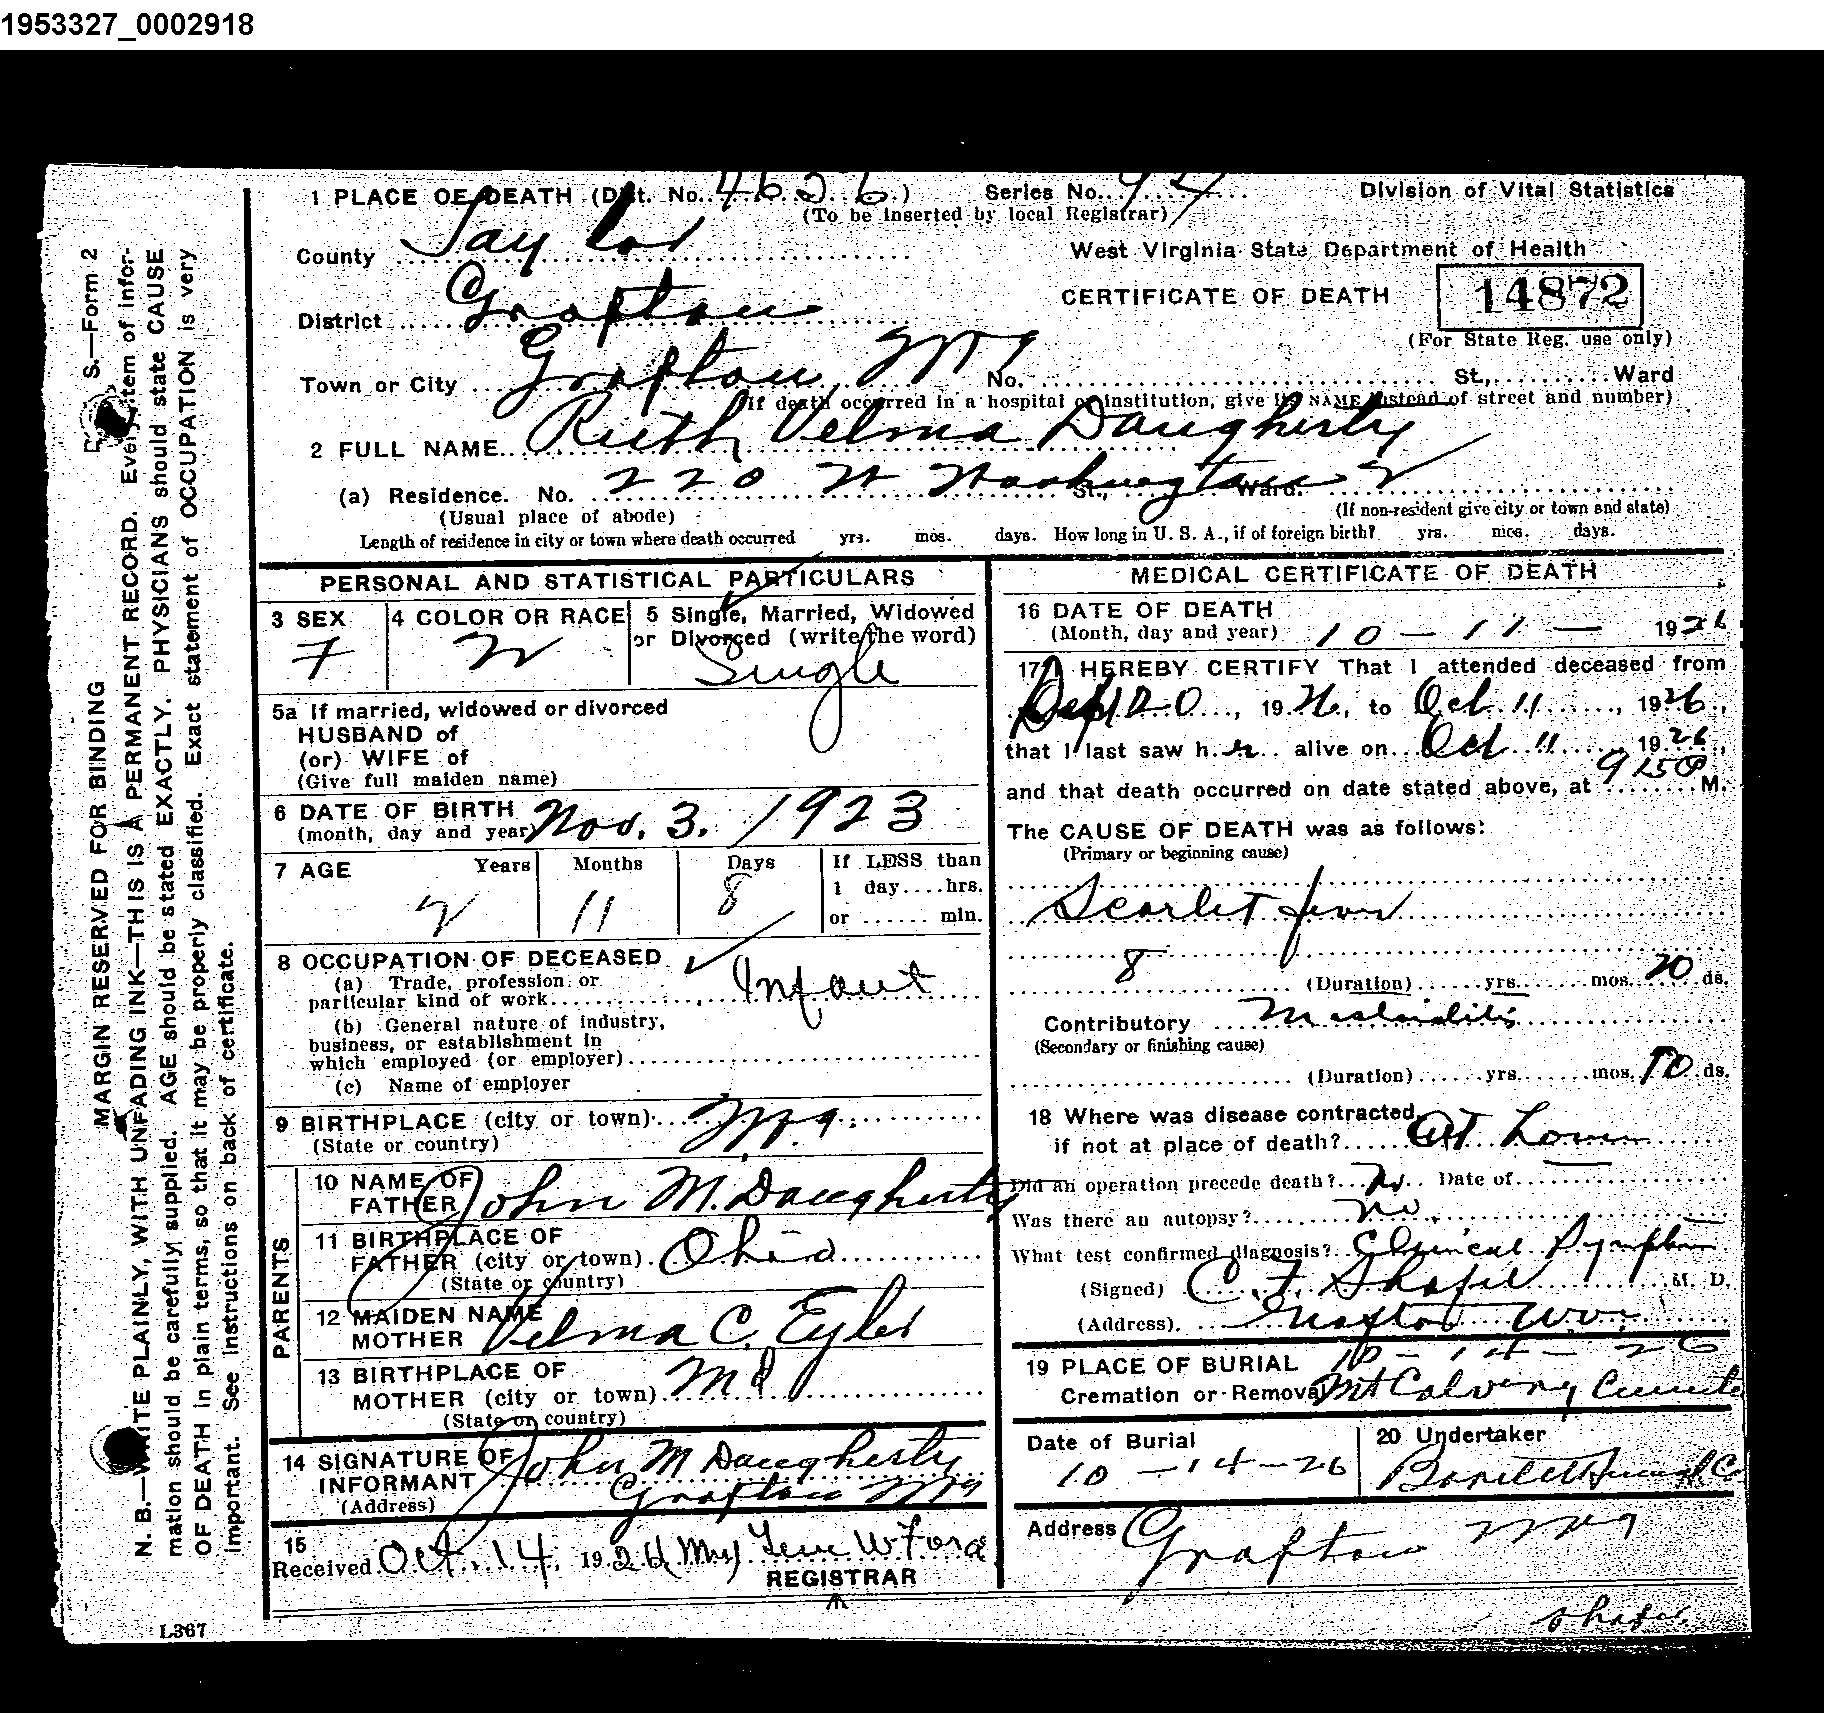 1953327_0002918
1 PLACE OF DEATH (Dist. No. 4626) Series No. 94 Division of Vital Statistics
(To be inserted by local Registrar)
County Taylor West Virginia State Department of Health
District Grafton CERTIFICATE OF DEATH 14872
(For State Reg. use only)
Town or City Grafton, No. St., Ward
(If death occurred in a hospital or institution, give its NAME instead of street and number)
2 FULL NAME Ruth Velma Daugherty
(a) Residence. No. 220 W Washington St., Ward.
(Usual place of abode) (If non-resident give city or town and state)
Length of residence in city or town where death occurred yrs. mos. days. How long in U. S. A., if of foreign birth? yrs. mos. days.
PERSONAL AND STATISTICAL PARTICULARS
3 SEX 4 COLOR OR RACE 5 Single, Married, Widowed
or Divorced (write the word)
F W Single
5a If married, widowed or divorced
HUSBAND of
(or) WIFE of
(Give full maiden name)
6 DATE OF BIRTH
(month, day and year) Nov. 3. 1923
7 AGE Years Months Days If LESS than
1 day....hrs.
or ...... min.
2 11 8
8 OCCUPATION OF DECEASED
(a) Trade, profession or
particular kind of work Infant
(b) General nature of industry,
business, or establishment in
which employed (or employer)
(c) Name of employer
9 BIRTHPLACE (city or town)
(State or country)
PARENTS
10 NAME OF
FATHER John M. Daugherty
11 BIRTHPLACE OF
FATHER (city or town) Ohio
(State or country)
12 MAIDEN NAME
MOTHER Velma C. Eyler
13 BIRTHPLACE OF
MOTHER (city or town) Md
(State or country)
14 SIGNATURE OF
INFORMANT John M Daugherty
(Address) Grafton
15
Received Oct. 14, 1926 W Ford
REGISTRAR
MEDICAL CERTIFICATE OF DEATH
16 DATE OF DEATH
(Month, day and year) 10 - 11 - 1926
17 I HEREBY CERTIFY That I attended deceased from
Sept 20, 1926, to Oct 11, 1926,
that I last saw her alive on Oct 11 1926,
and that death occurred on date stated above, at 9:50 P M.
The CAUSE OF DEATH was as follows:
(Primary or beginning cause)
Scarlet fever
8
(Duration) yrs. mos. 20 ds.
Contributory Mastoiditis
(Secondary or finishing cause)
(Duration) yrs. mos. 10 ds.
18 Where was disease contracted
if not at place of death? At home
Did an operation precede death? No Date of
Was there an autopsy? No
What test confirmed diagnosis? Clinical Symptom
(Signed) C. F. Shafer M. D.
(Address) Grafton W.Va.
10 - 14 - 26
19 PLACE OF BURIAL
Cremation or Removal Mt Calvery
Date of Burial 20 Undertaker
10 - 14 - 26
Address Grafton
N. B.—WRITE PLAINLY, WITH UNFADING INK—THIS IS A PERMANENT RECORD. Every item of infor-
mation should be carefully supplied. AGE should be stated EXACTLY. PHYSICIANS should state CAUSE
OF DEATH in plain terms, so that it may be properly classified. Exact statement of OCCUPATION is very
important. See instructions on back of certificate.
MARGIN RESERVED FOR BINDING
S.—Form 2
L367